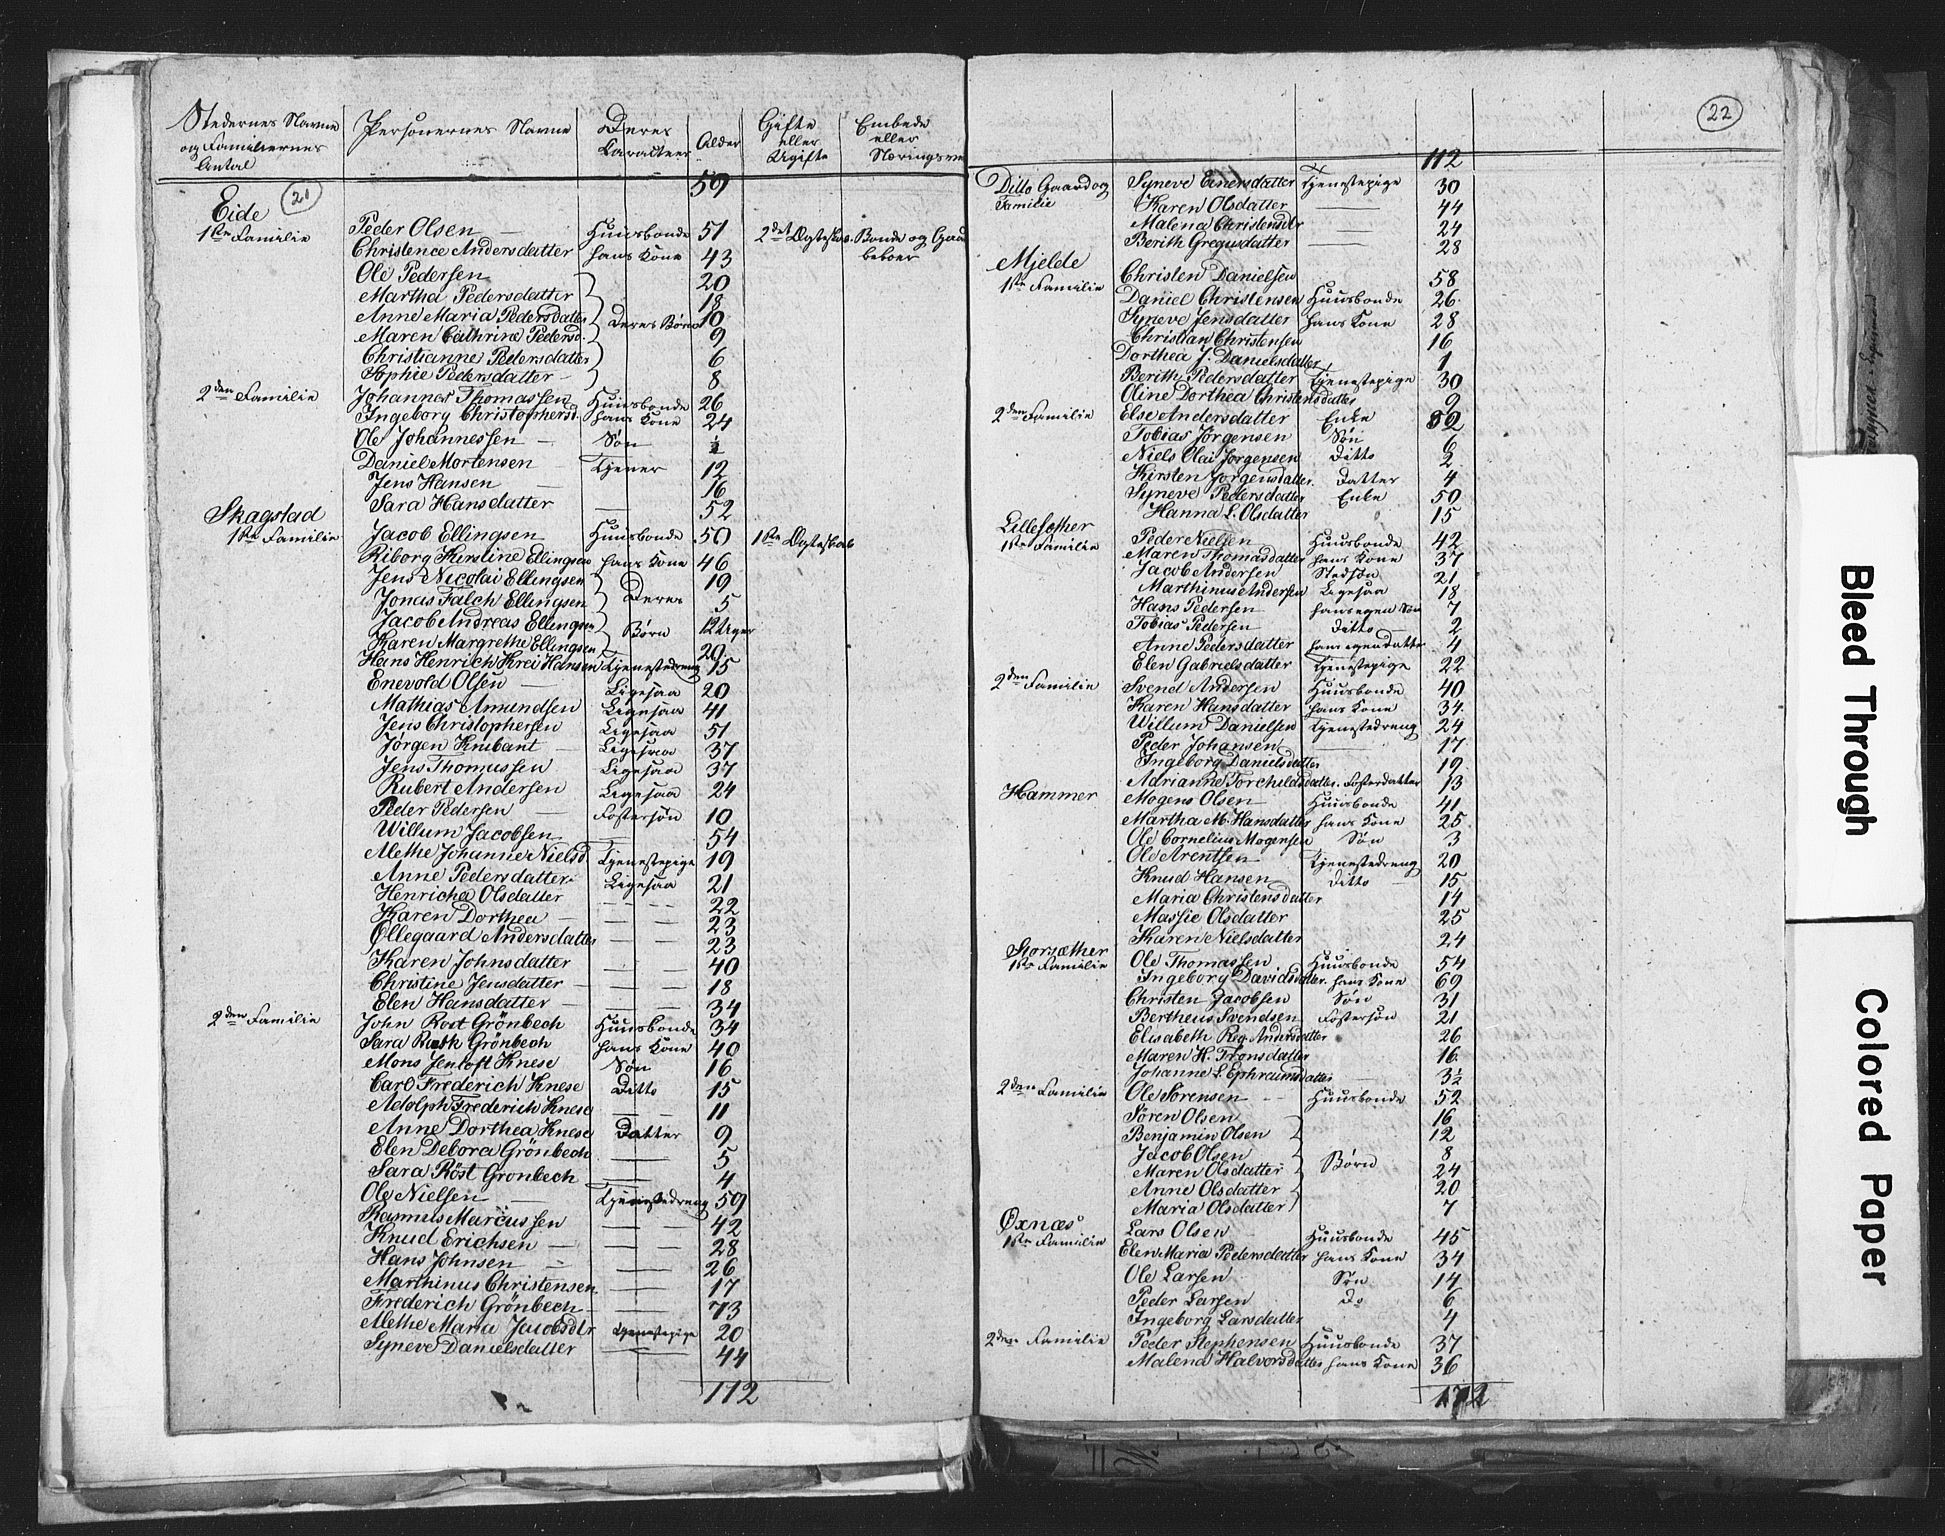 Stedernes Navne og Familiernes Antal | Personernes Navne | Deres Caracteer | Alder | Gifte eller Ugifte | Embede eller Næringsve
59
Eide 21
1ste Familie Peder Olsen — Huusbonde 51 2det Ægteskab. Bonde og Gaard
Christence Andersdatter hans Kone 43 beboer
Ole Pedersen 20
Martha Pedersdatter 18
Anne Maria Pedersdatter Deres Børn 10
Maren Cathrine Pedersd. 9
Christianne Pedersdatter 6
Sophie Pedersdatter 8
2den Familie Johannes Thomassen Huusbonde 26
Ingeborg Christophersd. hans Kone 24
Ole Johannessen — Søn ½
Daniel Mortensen — Tjener 12
Jens Hansen — 16
Sara Hansdatter — 52
Skagstad
1ste Familie Jacob Ellingsen Huusbonde 50 1ste Ægteskab
Riborg Kirstine Ellingsen hans Kone 46
Jens Nicolai Ellingsen 19
Jonas Falch Ellingsen Deres 5
Jacob Andreas Ellingsen Børn 12 Uger
Karen Margrethe Ellingsen 20
Hans Henrich Krei Hansen Tjenestedreng 15
Enevold Olsen — Ligesaa 20
Mathias Amundsen Ligesaa 41
Jens Christophersen Ligesaa 51
Jørgen Knubant — Ligesaa 37
Jens Thomassen Ligesaa 37
Rubert Andersen Ligesaa 24
Peder Pedersen — Fostersøn 10
Willum Jacobsen — 54
Methe Johanne Nielsd. Tjenestepige 19
Anne Pedersdatter Ligesaa 21
Henricha Olsdatter — — 22
Karen Dorthea — — — 23
Ollegaard Andersdatter — — 23
Karen Johnsdatter — — 40
Christine Jensdatter — — 18
Elen Hansdatter — — — 34
2den Familie John Rost Grönbech Huusbonde 34
Sara Grönbech hans Kone 40
Mons Jentoft Knese Søn 16
Carl Frederich Knese Ditto 15
Adolph Frederich Knese — — 11
Anne Dorthea Knese Datter 9
Elen Debora Grönbech — 5
Sara Röst Gronbech — 4
Ole Nielsen — Tjenestedreng 59
Rasmus Marcussen — — 42
Knud Erichsen — — — 28
Hans Johnsen — — 26
Marthinus Christensen — 17
Frederich Grönbech — 73
Methe Maria Jacobsdtr Tjenestepige 20
Syneve Danielsdatter — 44
112
22
112
Ditto Gaard og Familie Syneve Einersdatter Tjenestepige 30
Karen Olsdatter — 44
Malena Christensdtr — 24
Berith Gregusdatter — 28
Mjelde
1ste Familie Christen Danielsen 58
Daniel Christensen Huusbonde 26
Syneve Jensdatter hans Kone 28
Christian Christensen 16
Dorthea J. Danielsdatter 1
Berith Pedersdatter Tjenestepige 30
Oline Dorthea Christensdatter 9
2den Familie Else Andersdatter Enke
Tobias Jørgensen Søn 6
Niels Olai Jorgensen Ditto 2
Kirsten Jorgensdatter. Datter 4
Syneve Pedersdatter Enke 50
Hanna L. Olsdatter 15
Lillesæther
1ste Familie Peder Nielsen Huusbonde 42
Maren Thomasdatter hans Kone 37
Jacob Andersen Stedsøn 21
Marthinus Andersen Ligesaa 18
Hans Pedersen hans egen Søn 7
Tobias Pedersen Ditto 2
Anne Pedersdatter hans egen datter 4
Elen Gabrielsdatter Tjenestepige 22
2den Familie Svend Andersen Huusbonde 40
Karen Hansdatter hans Kone 34
Willum Danielsen Tjenestedreng 24
Peder Johansen 17
Ingeborg Danielsdatter 19
Adrianne Torchildsdatter. Fosterdatter 13
Hammer Mogens Olsen — Huusbonde 41
Martha M. Hansdatter hans Kone 25
Ole Cornelius Mogensen Søn 3
Ole Arentsen Tjenestedreng 20
Knud Hansen — Ditto — 15
Maria Christensdatter 14
Massie Olsdatter 25
Karen Nielsdatter 24
Storsæther
1ste Familie Ole Thomassen Huusbonde 54
Ingeborg Davidsdatter. hans Kone 69
Christen Jacobsen Søn 31
Bertheus Svendsen Fostersøn 21
Elisabeth Reg. Andersdatter 26
Maren H. Tronsdatter 16
Johanne L. Ephraimsdatter 3½
2den Familie Ole Sorensen — Huusbonde 52
Søren Olsen 16
Benjamin Olsen 12
Jacob Olsen 8
Maren Olsdatter Børn 24
Anne Olsdatter 20
Maria Olsdatter 7
Øxnæs
1ste Familie Lars Olsen — Huusbonde 45
Elen Maria Pedersdatter hans Kone 34
Ole Larsen Søn 14
Peder Larsen Do 6
Ingeborg Larsdatter 4
2den Familie Peder Stephensen Huusbonde 37
Malena Halvorsdatter hans Kone 36
172
Bleed Through
Colored Paper